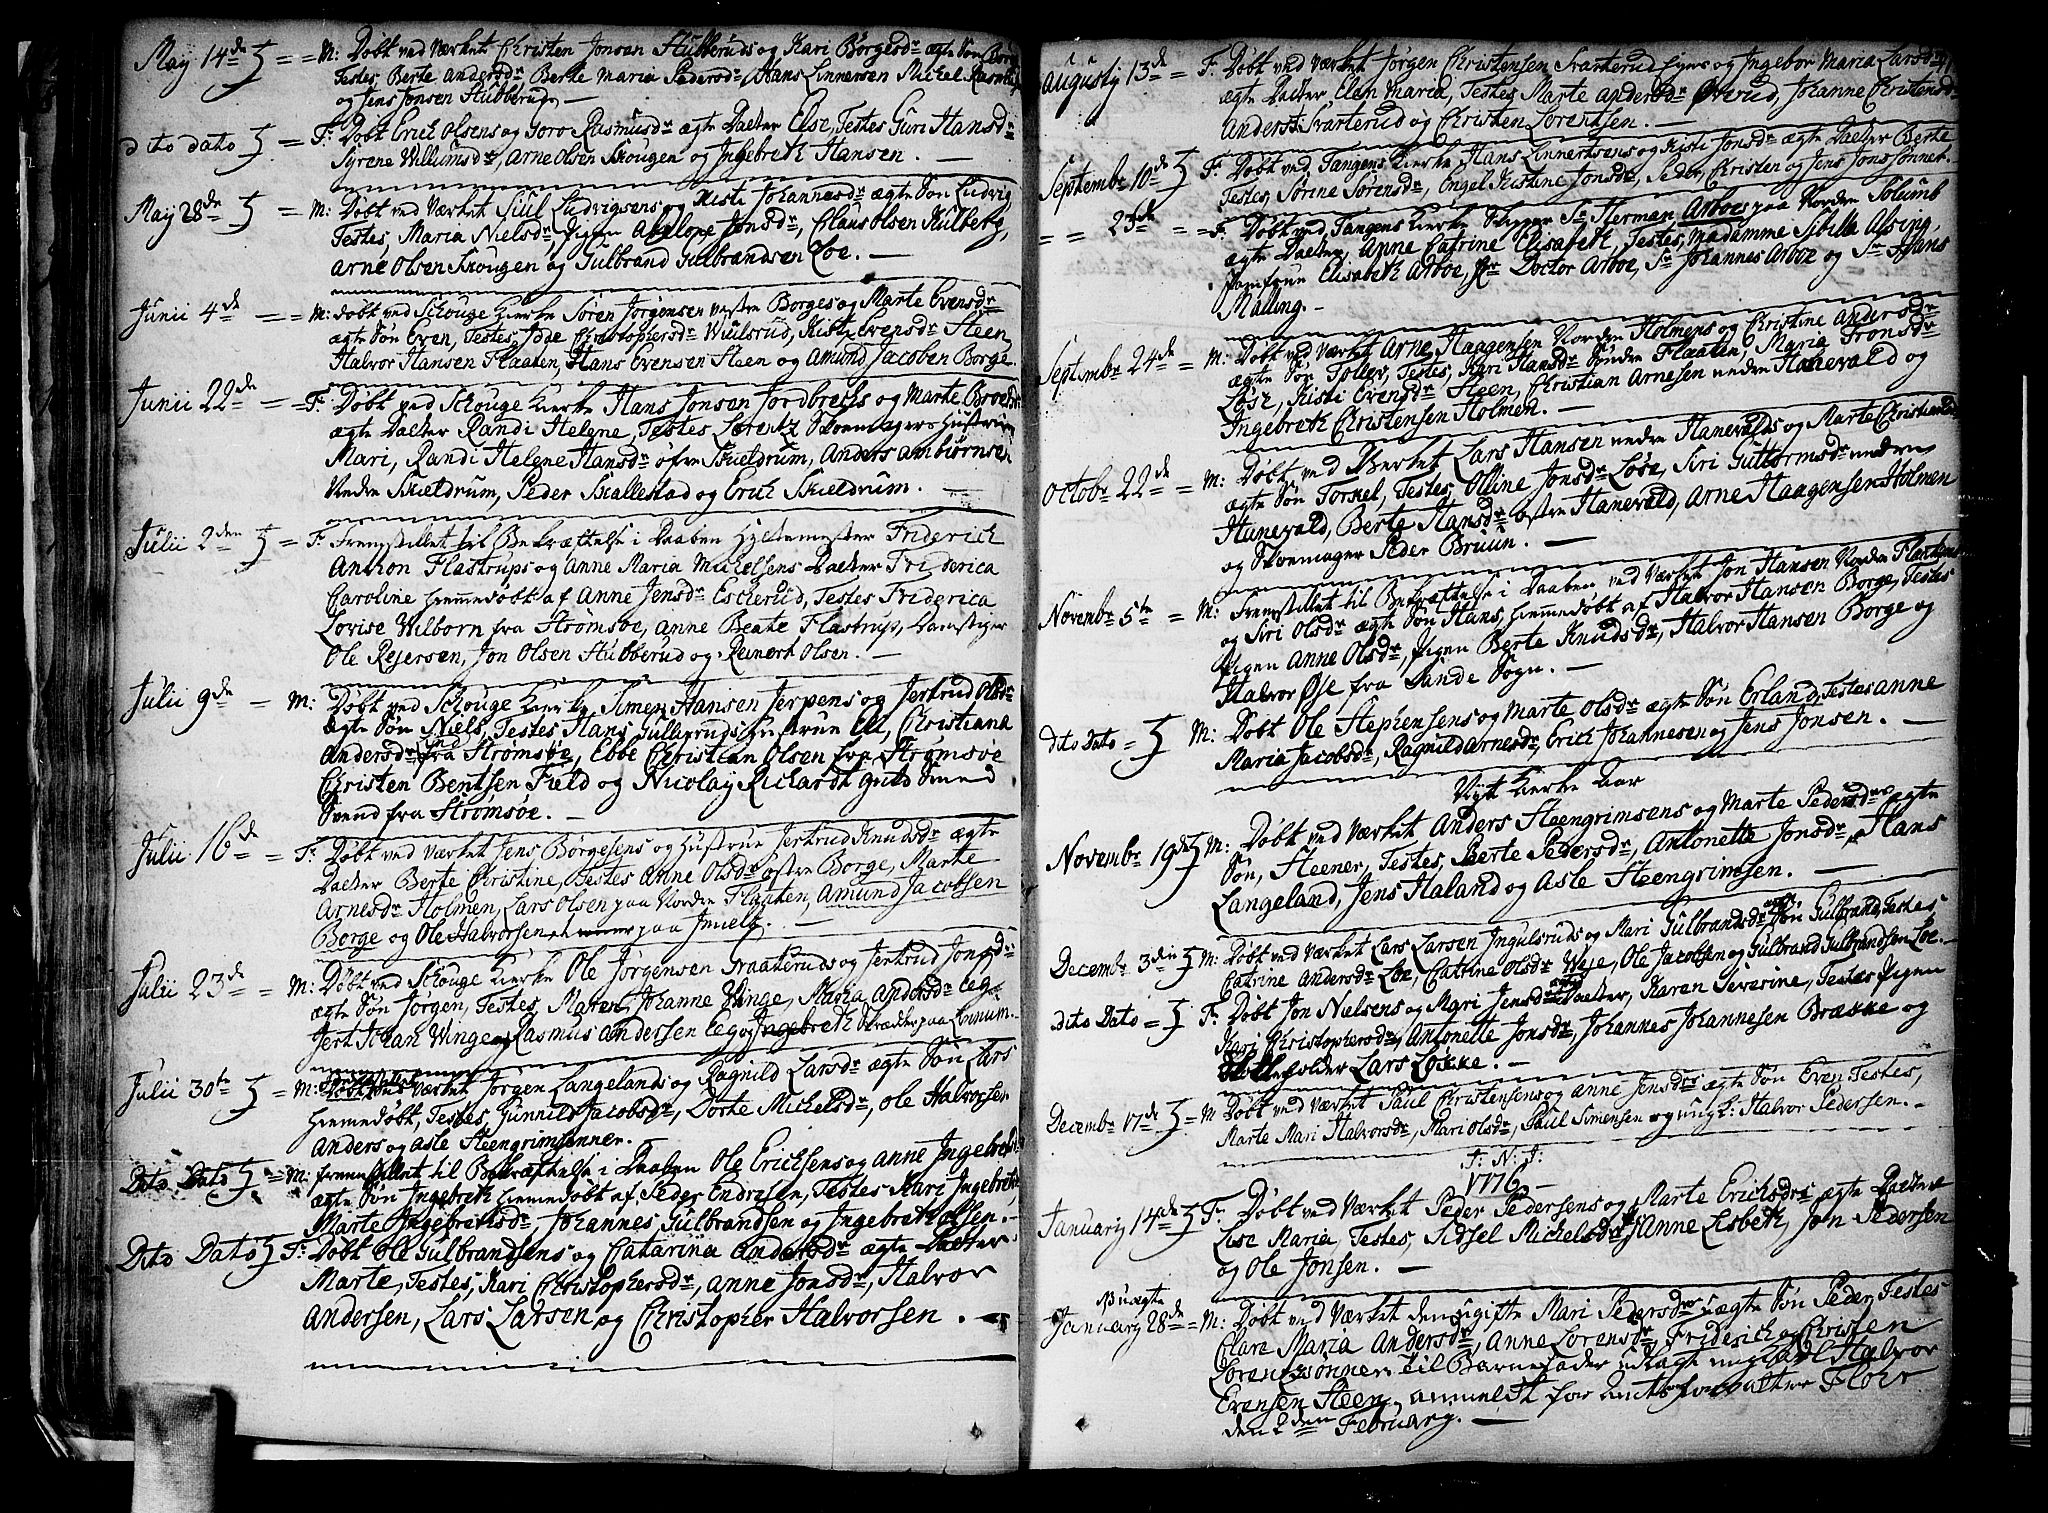 May 14de = = M: Døbt ved Værket Christen Jonsen Stubberuds og Kari Børgesdr ægte Søn Børge
Testes, Berte Andersdr, Berte Maria Pedersdr, Hans Linnersen Michel Rasmus
og Jens Jonsen Stubberud. —
dito dato = F: Døbt Erich Olsens og Goro Rasmusdr ægte Daatter Else, Testes Guri Hansdr
Syrene Willumsdr, Arne Olsen Skougen og Ingebreth Hansen. —
May 28de = M: Døbt ved Værket Siul Ludvigsens og Kisti Johannesdr ægte Søn Ludvig,
Testes, Maria Nielsdr, Pigen Abelone Jonsdr, Claus Olsen Kulberg,
Arne Olsen Skougen og Gulbrand Gulbrandsen Loe. —
Junii 4de = = M: Døbt ved Schouge Kierke Søren Jørgensen vestre Borges og Marte Evensdr
ægte Søn Even, Testes, Christophersdr Wiulsrud, Kisti Evensdr Steen,
Halvor Hansen Flaaten, Hans Evensen Steen og Amund Jacobsen Borge.
Junii 22de = = F: Døbt ved Schouge Kierke Hans Jonsen Jordbrechs og Marte
ægte Datter Randi Helene, Testes Lorentz Skoemagers Hustrue
Mari, Randi Helene Hansdr øfre Skieldrum, Anders Ambiørnsen
Nedre Skieldrum, Peder Skallestad og Erich Skieldrum. —
Julii 2den = F: Fremstillet til Bekræftelse i Daaben Hyttemester Friderich
Anthon Flastrups og Anne Maria Michelsens Datter Friderica
Caroline hjemmedøbt af Anne Jensdr Eskerud, Testes Friderica
Lovise Wilborn fra Strømsøe, Anne Beate Flastrup,
Ole Rejersen, Jon Olsen Stubberud og Reinert Olsen. —
Julii 9de = M: Døbt ved Schouge Kierke Simen Hansen Jerpens og Jertrud Olsdr
ægte Søn Niels, Testes Hans Hustrue Eli, Christiana
Andersdr fra Strømsøe, Ebbe Christian Olsen fra Strømsøe
Christen Bentsen Field og Nicolay Richardt Smed
Svend fra Strømsøe. —
Julii 16de = F: Døbt ved Værket Jens Børgesens og Hustrue Jertrud Knudsdr ægte
Datter Berte Christine, Testes Anne Olsdr østre Borge, Marte
Arnesdr Holmen, Lars Olsen paa Nordre Flaaten, Amund Jacobsen
Borge og Ole Halvorsen paa
Julii 23de = M: Døbt ved Schouge Kierke Ole Jørgensen Fraateruds og Jertrud Jonsdr
ægte Søn Jørgen, Testes, Maren Johanne Winge, Maria Andersdr Eeg
Jert Johan Winge, Rasmus Andersen Eeg og Ingebreth Skrædder paa Linnum.
Julii 30te = M: ved Værket Jørgen Langelands og Ragnild Larsdr ægte Søn Lars
hjemmedøbt, Testes, Gunnild Jacobsdr, Dorte Michelsdr, Ole Halvorsen,
Anders og Asle Steengrimsønner.
Dito Dato = M: fremstillet til Bekræftelse i Daaben Ole Erichsens og Anne Ingebrethsdr
ægte Søn Ingebreth hjemmedøbt af Peder Endresen, Testes Kari Ingebrethsdr
Marte Ingebrethsdr, Johannes Gulbrandsen og Ingebreth Olsen. —
Dito Dato F: Døbt Ole Gulbrandsens og Catarina Andersdr ægte Datter
Marte, Testes, Kari Christophersdr, Anne Jonsdr, Halvor
Andersen, Lars Larsen og Christopher Halvorsen. —
Augustij 13de = F: Døbt ved Værket Jørgen Christensen Svarterud og Ingebor Maria Larsdr
ægte Datter, Elen Maria, Testes Marte Andersdr Øverud, Johanne Christensdr
Anders Svarterud og Christen Lorentsen. —
Septembr 10de F: Døbt ved Tangens Kierke Hans Linnertsens og Kisti Jonsdr ægte Datter Berte
Testes, Sørine Sørensdr, Engel Kistine Jonsdr, Peder, Christen og Jens Jonssønner.
= = 23de = = F: Døbt ved Tangens Kierke Sr Herman Arboes paa Nordre Solumb
ægte Datter, Anne Catrine Elisabeth, Testes, Madamme Sibilla Alsing,
Jomfrue Elisabeth Arboe, Hr Doctor Arboe, Sr Johannes Arboe og Sr Hans
Malling. —
Septembr 24de = M: Døbt ved Værket Arne Haagensen Nordre Holmens og Christine Andersdr
ægte Søn Tollev, Testes, Kari Hansdr Søndre Flaaten, Maria Tronsdr
Løse, Kisti Evensdr Steen, Christian Arnesen nedre Hanevald og
Ingebreth Christensen Holmen. —
Octobr 22de = M: Døbt ved Værket Lars Hansen nedre Hanevalds og Marte Christiansdr
ægte Søn Torkel, Testes, Olline Jonsdr Løse, Siri Guttormsdr nedre
Hanevald, Berte Hansdr østre Hanevald, Arne Haagensen Holmen
og Skoemager Peder Bruun. —
Novembr 5te = M: Fremstillet til Bekræftelse i Daaben ved Værket Jon Hansen Nordre Flaatens
og Siri Olsdr ægte Søn Hans, hjemmedøbt af Halvor Hansen Borge, Testes
Pigen Anne Olsdr, Pigen Berte Knudsdr, Halvor Hansen Borge og
Halvor Øse fra Sande Sogn. —
dito Dato = M: Døbt Ole Stephensens og Marte Olsdr ægte Søn Erland, Testes Anne
Maria Jacobsdr, Ragnild Arnesdr, Erich Johannesen og Jens Jonsen. —
Nyt Kierke Aar
Novembr 19de M: Døbt ved Værket Anders Steengrimsens og Marte Pedersdrs ægte
Søn, Steener, Testes, Berte Pedersdr, Antonette Jonsdr, Hans
Langeland, Jens Haland og Asle Steengrimsen. —
Decembr 3die M: Døbt ved Værket Lars Larsen Ingulsruds og Mari Gulbrandsdr ægte Søn Gulbrand, Testes
Catrine Andersdr Loe, Catrine Olsdr Weje, Ole Jacobsen og Gulbrand Gulbrandsen Loe. —
dito Dato = F: Døbt Jon Nielsens og Mari Jensdr ægte Datter, Karen Severine, Testes Pigen
Kari Christophersdr, Antonette Jonsdr, Johannes Johannesen Brække og
Lars Løkke. —
Decembr 17de = M Døbt ved Værket Paul Christensens og Anne Jensdrs ægte Søn Even, Testes,
Marte Mari Halvorsdr, Mari Olsdr, Paul Simensen og ung K: Halvor Pedersen. —
J: N: J:
1776. —
Januarij 14de F: Døbt ved Værket Peder Pedersens og Marte Erichsdrs ægte Datter
Lise Maria, Testes, Sidsel Michelsdr, Anne Lisbeth, Jon Pedersen
og Ole Jonsen. —
Uægte
Januarij 28de = M: Døbt ved Værket den ugifte Mari Pedersdrs uægte Søn Peder, Testes
Clare Maria Andersdr, Anne Lorensdr, Friderich og Christen
Lorentzsønner til Barnefader udlagt ung Karl Halvor
Evensen Steen, anmeldt for Amtsforvalter Floer
den 2den Februarij. —